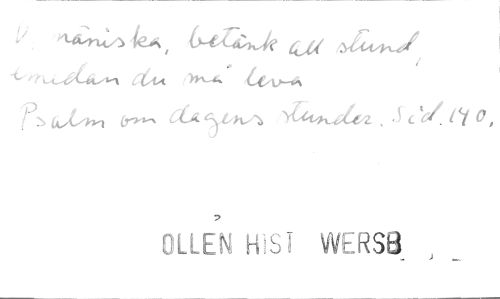 V. mäniska, betänk all stund,
emedan du må leva
Psalm om dagens stunder. Sid. 140.
OLLEN HIST WERSB